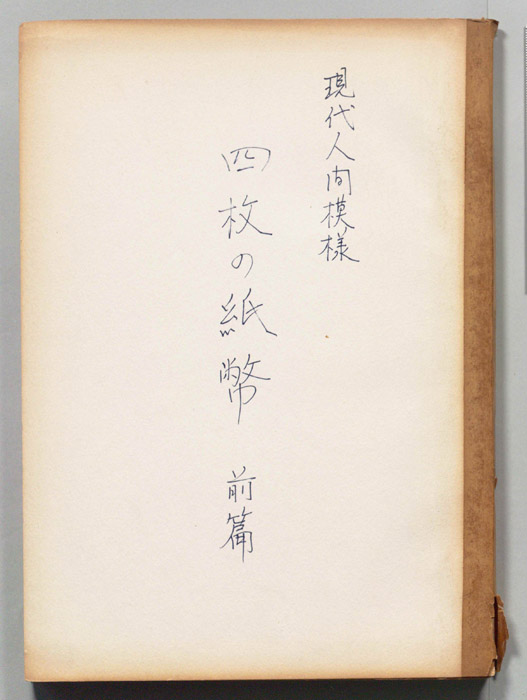 現代人间模様
四枚の紙幣 前篇